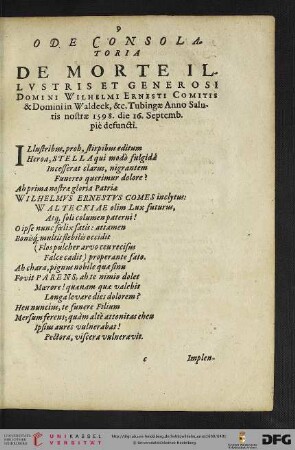 9
ODE CONSOLA-
TORIA
DE MORTE IL-
LVSTRIS ET GENEROSI
DOMINI WILHELMI ERNESTI COMITIS
& Domini in Waldeck, &c. Tubingæ Anno Salu-
tis nostræ 1598. die 16. Septemb.
piè defuncti.
ILlustribus, proh, stirpibus editum
Heroa, STELLA qui modò fulgidâ
Incesserat clarus, nigrantem
Funereo querimur dolore?
Ah prima nostræ gloria Patriæ
WILHELMVS ERNESTVS COMES inclytus:
WALTECKIAE olim Lux futurus,
Atq; soli columen paterni!
O ipse nunc felix satis: attamen
Bonisq; multis flebilis occidit
(Flos pulcher arvo ceu recisus
Falce cadit) properante fato.
Ah chara, pignus nobile quæ sinu
Fovit PARENS, ah te nimio dolet
Mœrore! quanam quæ valebit
Longa levare dies dolorem?
Heu nuncius, te funere Filium
Mersum ferens, quàm altè attonitas eheu
Ipsius aures vulnerabas!
Pectora, viscera vulneravit.
c Implen-
UNIVERSITÄTS-BIBLIOTHEK HEIDELBERG
UNIKASSEL VERSITÄT
DFG